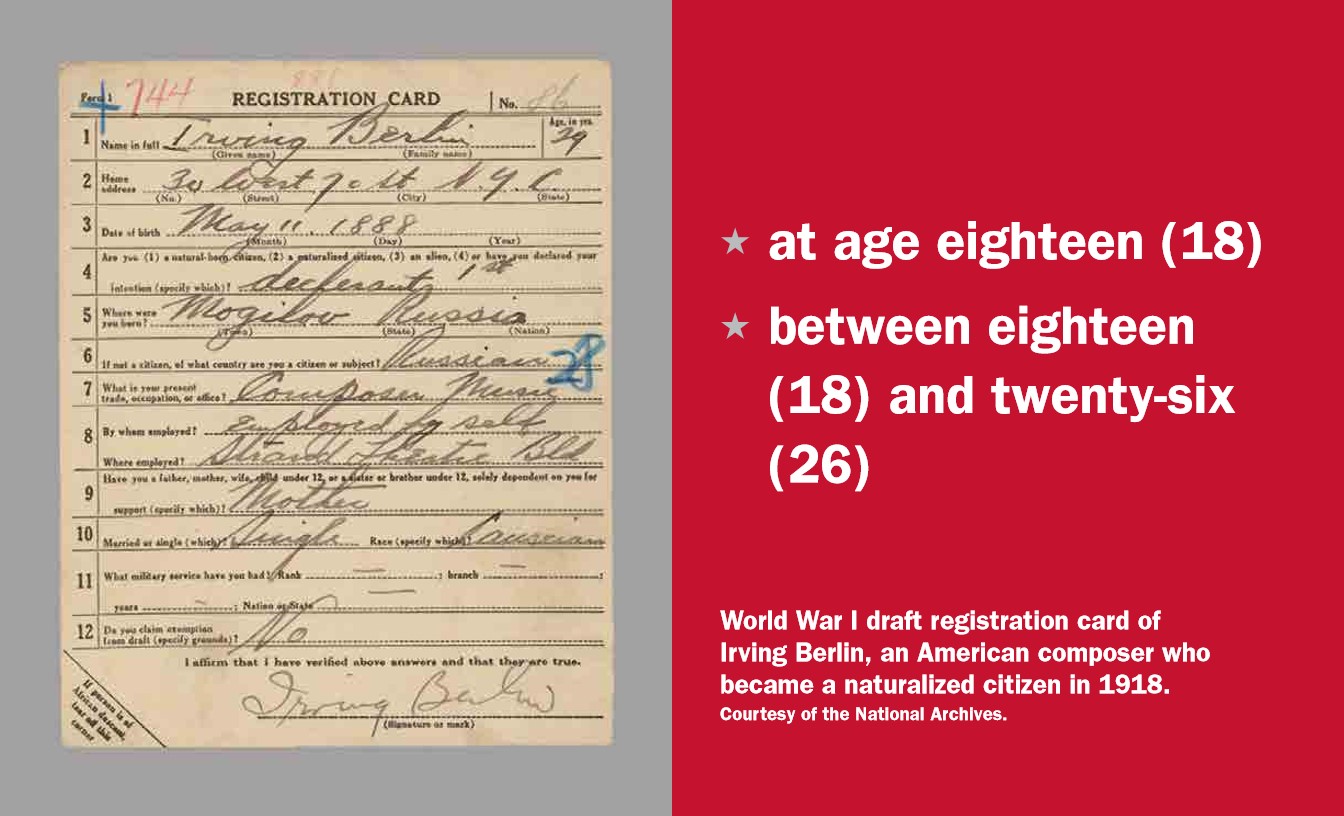 Form 1 744 881 REGISTRATION CARD No. 86
1 Name in full Irving Berlin Age, in yrs. 29
(Given name) (Family name)
2 Home address 30 West 70 St N.Y.C.
(No.) (Street) (City) (State)
3 Date of birth May 11. 1888
(Month) (Day) (Year)
4 Are you (1) a natural-born citizen, (2) a naturalized citizen, (3) an alien, (4) or have you declared your
intention (specify which)? 1st
5 Where were you born? Mogilov Russia
(Town) (State) (Nation)
6 If not a citizen, of what country are you a citizen or subject? Russian 28
7 What is your present trade, occupation, or office? Composer Music
8 By whom employed? Employed by self
Where employed? Strand Theatre Bld
9 Have you a father, mother, wife, child under 12, or a sister or brother under 12, solely dependent on you for
support (specify which)? Mother
10 Married or single (which)? Single Race (specify which)? Caucasian
11 What military service have you had? Rank — ; branch — ;
years — ; Nation or State —
12 Do you claim exemption from draft (specify grounds)? No
I affirm that I have verified above answers and that they are true.
Irving Berlin
(Signature or mark)
If person is of
African descent,
tear off this
corner
★ at age eighteen (18)
★ between eighteen
(18) and twenty-six
(26)
World War I draft registration card of
Irving Berlin, an American composer who
became a naturalized citizen in 1918.
Courtesy of the National Archives.